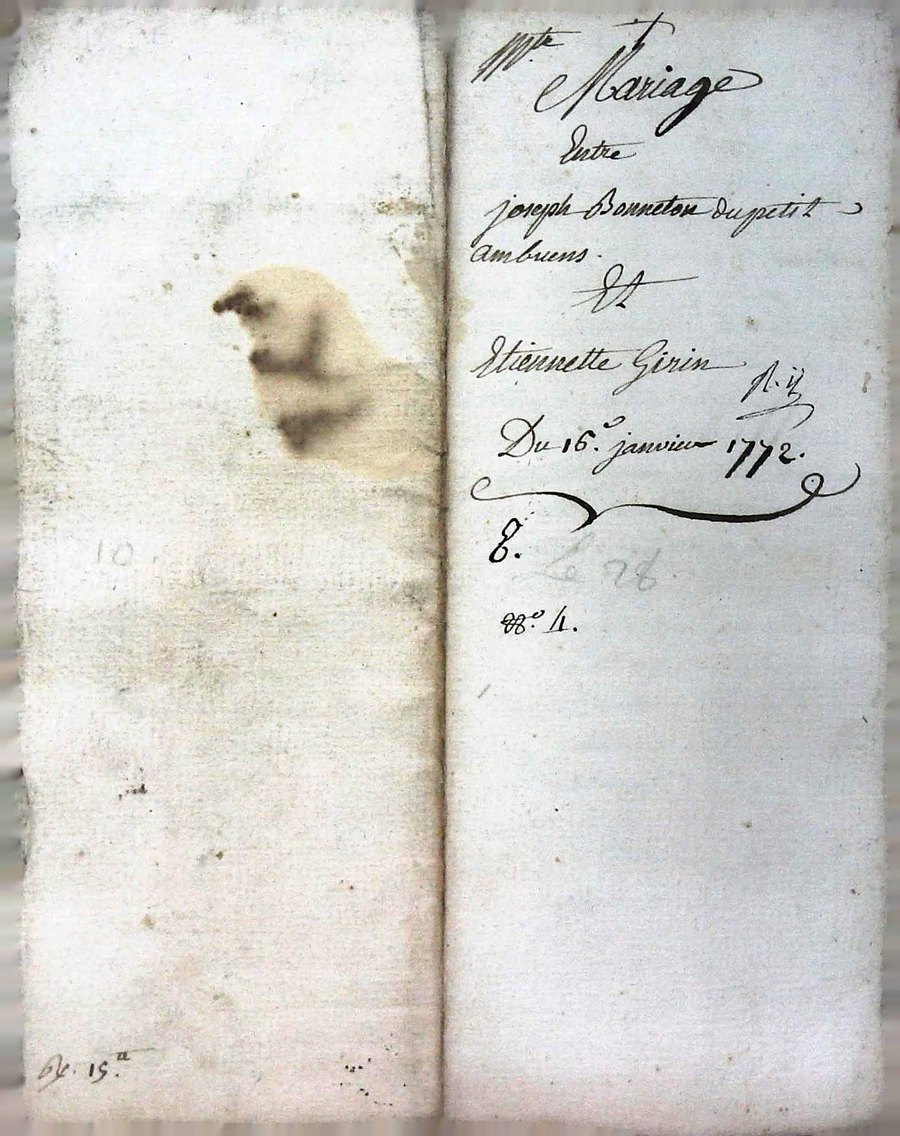 Mte
Mariage
Entre
joseph Bonneton du petit
ambuens.
Et
Etiennette Girin
Du 16e. janvier 1772.
8.
Le 78.
No. 4.
10
15.a